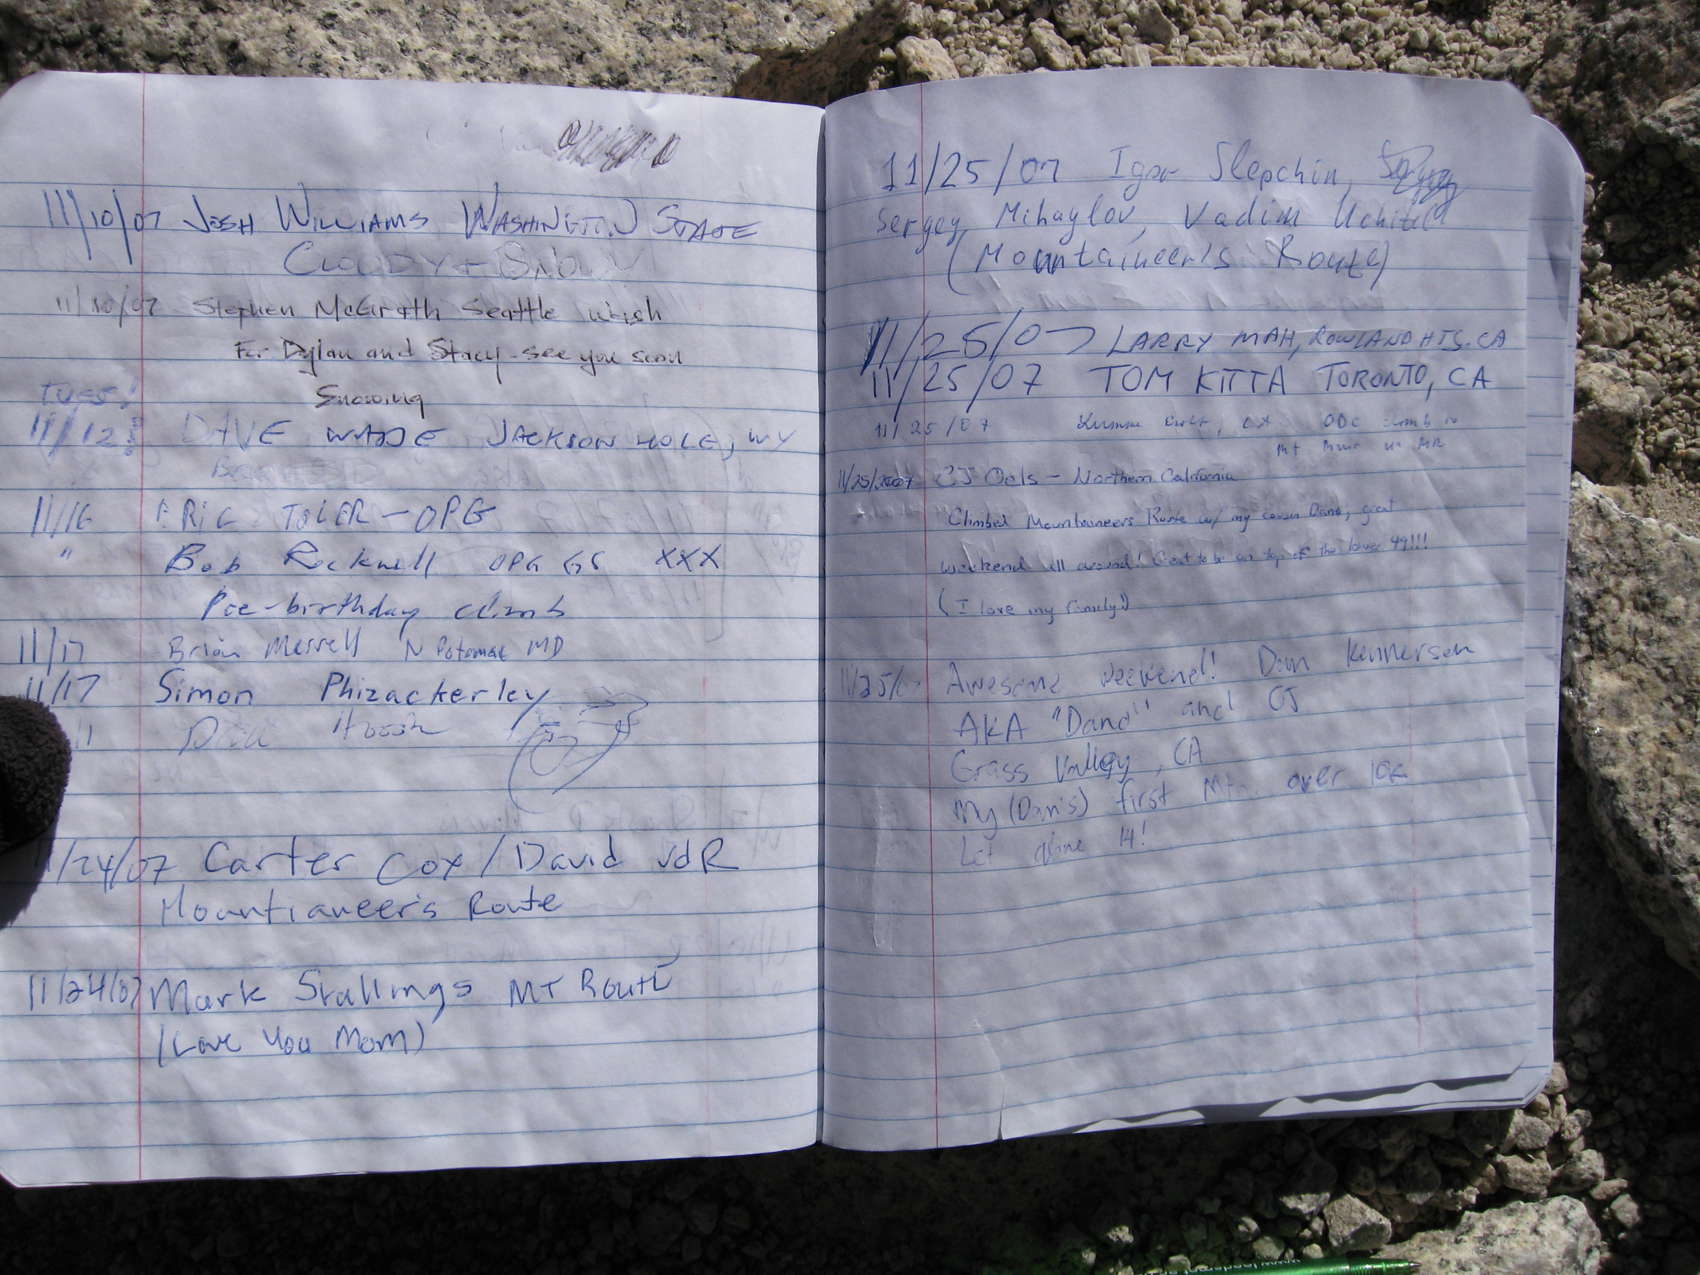 11/10/07 JOSH WILLIAMS WASHINGTON STATE
CLOUDY + SNOW
11/10/07 Stephen McGrath Seattle Wish
For Dylan and Stacy - see you soon
Snowing
TUES!
11/12 DAVE WADE JACKSON HOLE, WY
11/16 ERIC TOLER - OPG
" Bob Rockwell OPG GS XXX
Pre-birthday climb
11/17 Brian Merrell N Potomac MD
11/17 Simon Phizackerley
/24/07 Carter Cox / David vdR
Mountianeer's Route
11/24/07 Mark Stallings MT ROUTE
(Love You Mom)
11/25/07 Igor Slepchin,
Sergey Mihaylov, Vadim
(Mountaineer's Route)
11/25/07 LARRY MAH, ROWLAND HTS. CA
11/25/07 TOM KITTA TORONTO, CA
11/25/07
11/25/2007 CJ - Northern California
Climbed Mountaineers Route w/ my cousin Dano, great
weekend all around! Great to be on top of the lower 49!!!
(I love my family!)
11/25/07 Awesome weekend! Dan Kennerson
AKA "Dano" and CJ
Grass Valley, CA
My (Dan's) first Mtn. over 10k
Let alone 14!